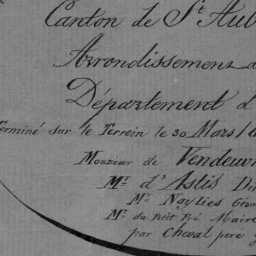 Canton de St. Aub
Arrondissement d
Département d
Terminé sur le Terrein le 30 Mars
Monsieur de Vendeuvr
Mr. d'Astis Di
Mr. Noylies Géom
Mr. du Maire
par Cheval père